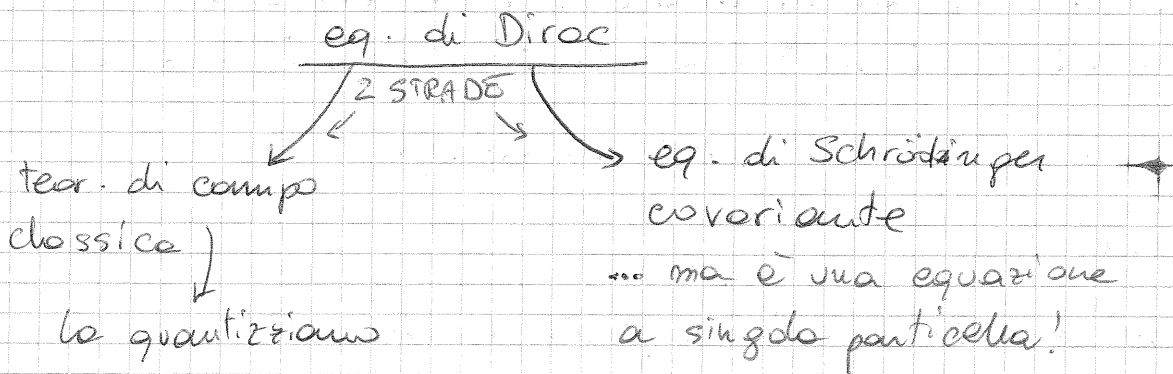 eq. di Dirac
2 STRADE
teor. di campo
classica
la quantizziamo
eq. di Schrödinger
covariante
... ma è una equazione
a singola particella!